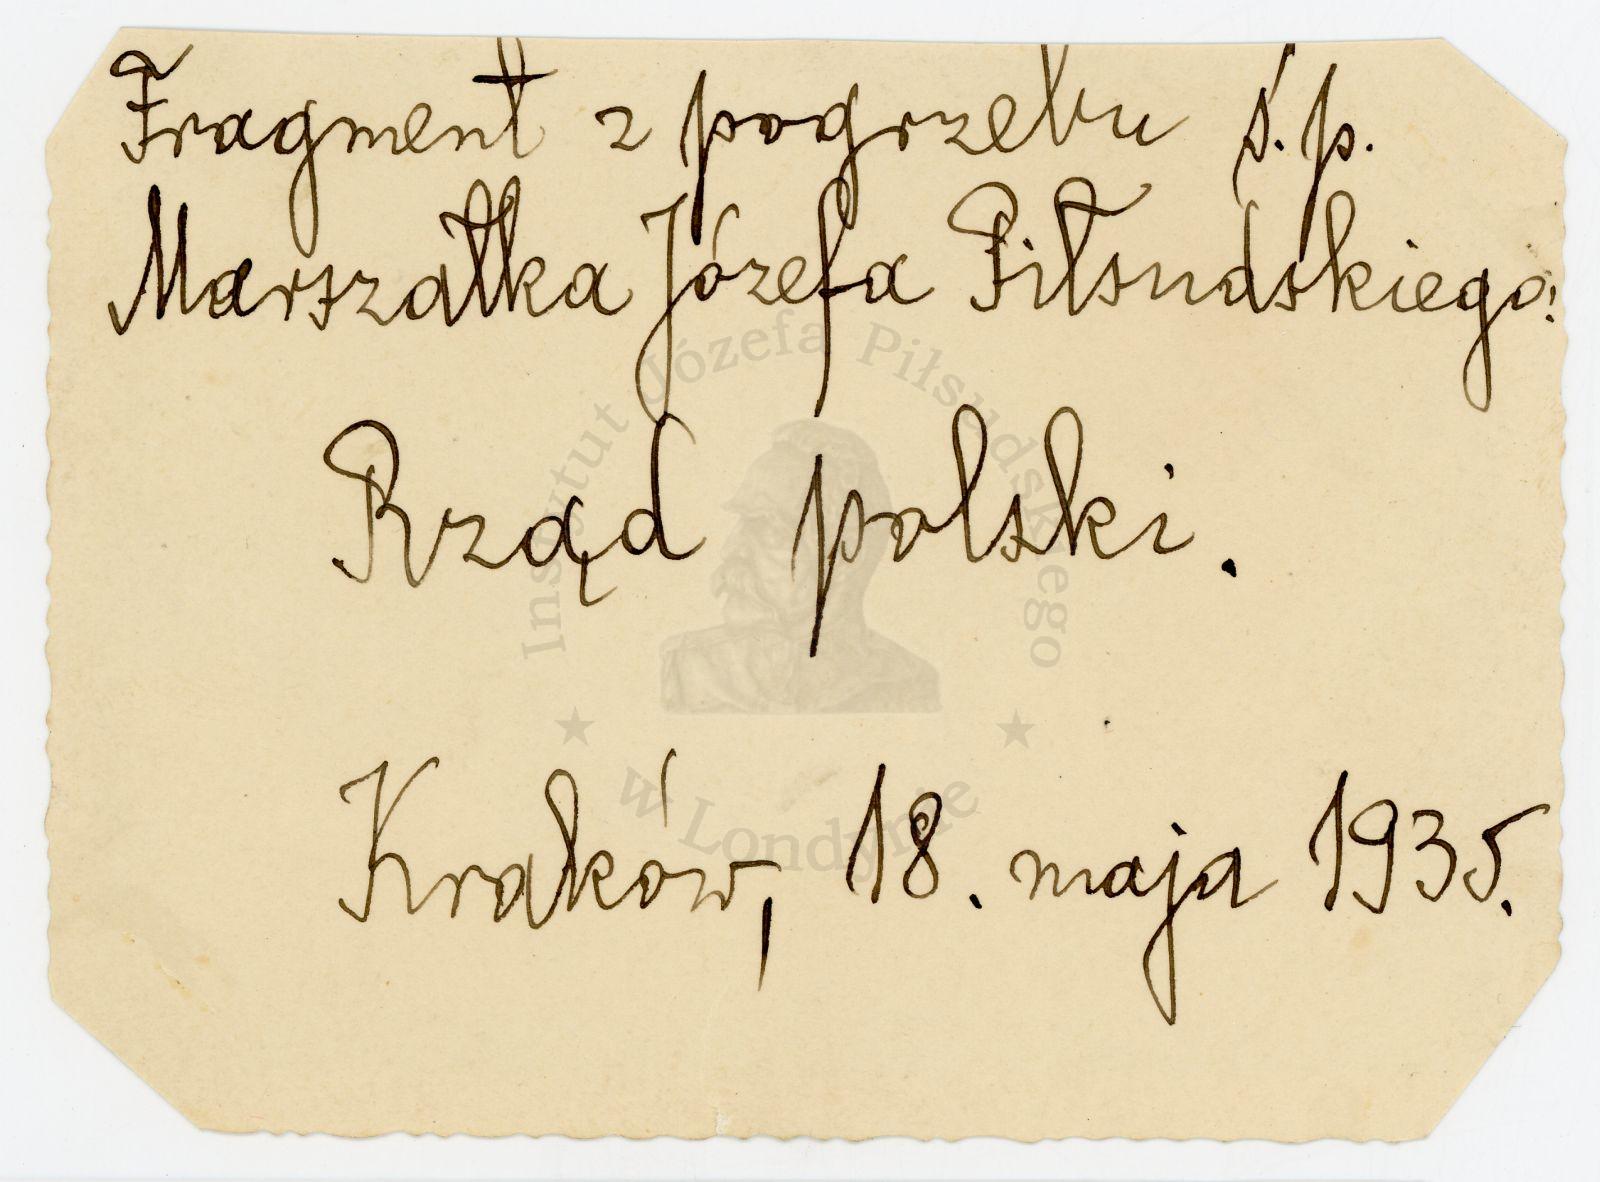 Fragment z pogrzebu ś.p.
Marszałka Józefa Piłsudskiego:
Rząd polski.
Kraków, 18. maja 1935.
Instytut Józefa Piłsudskiego
w Londynie